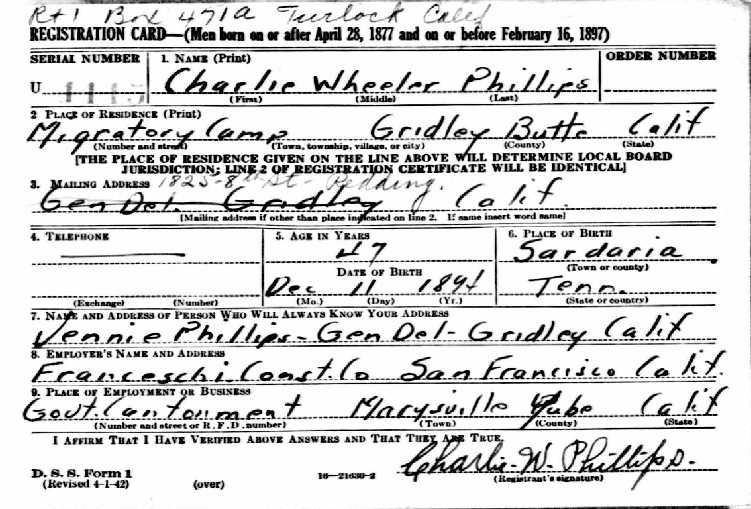 Rt 1 Box 471a Turlock Calif
REGISTRATION CARD—(Men born on or after April 28, 1877 and on or before February 16, 1897)
SERIAL NUMBER 1. NAME (Print) ORDER NUMBER
U Charlie Wheeler Phillips
(First) (Middle) (Last)
2 PLACE OF RESIDENCE (Print)
Migratory Camp Gridley Butte Calif
(Number and street) (Town, township, village, or city) (County) (State)
[THE PLACE OF RESIDENCE GIVEN ON THE LINE ABOVE WILL DETERMINE LOCAL BOARD
JURISDICTION; LINE 2 OF REGISTRATION CERTIFICATE WILL BE IDENTICAL]
3. MAILING ADDRESS 1825-8th St- Redding.
Gen Del. Gridley Calif.
[Mailing address if other than place indicated on line 2. If same insert word same]
4. TELEPHONE 5. AGE IN YEARS 6. PLACE OF BIRTH
47 Sardaria
(Town or county)
DATE OF BIRTH
Dec 11 1894 Tenn.
(Exchange) (Number) (Mo.) (Day) (Yr.) (State or country)
7. NAME AND ADDRESS OF PERSON WHO WILL ALWAYS KNOW YOUR ADDRESS
Jennie Phillips- Gen Del- Gridley Calif
8. EMPLOYER'S NAME AND ADDRESS
Franceschi Const. Co San Francisco Calif.
9. PLACE OF EMPLOYMENT OR BUSINESS
Govt. Cantonment Marysville Yuba Calif
(Number and street or R. F. D. number) (Town) (County) (State)
I AFFIRM THAT I HAVE VERIFIED ABOVE ANSWERS AND THAT THEY ARE TRUE.
D. S. S. Form 1 Charlie W. Phillips.
(Revised 4-1-42) (over) 16—21630-2 (Registrant's signature)